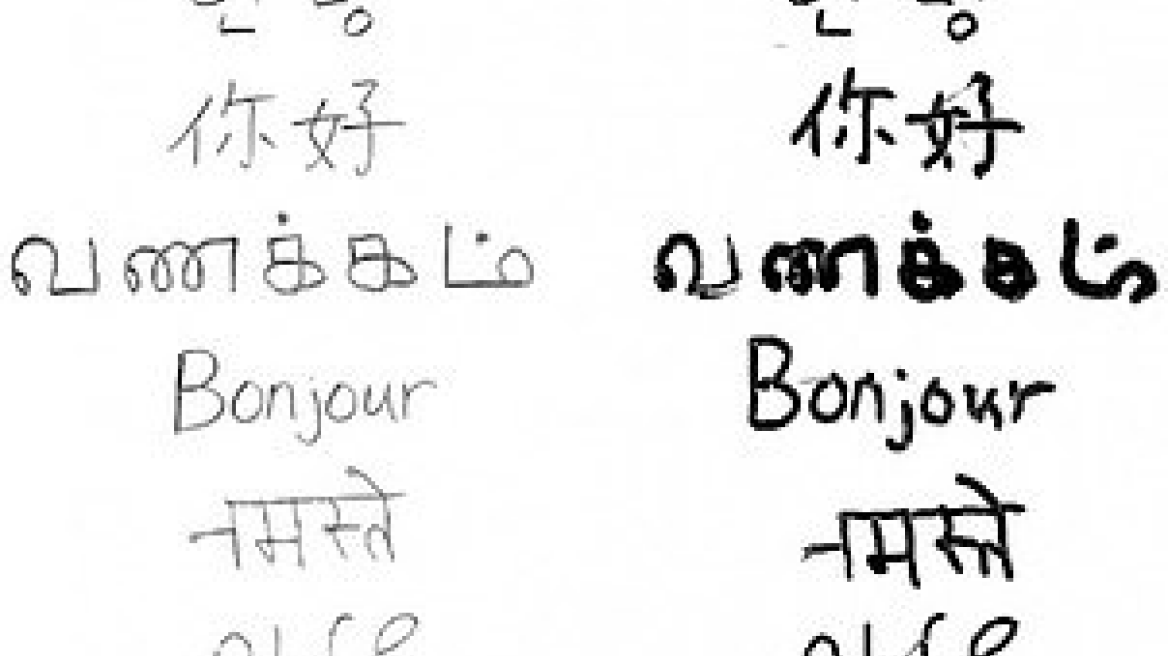 你好 你好
வணக்கம் வணக்கம்
Bonjour Bonjour
नमस्ते नमस्ते